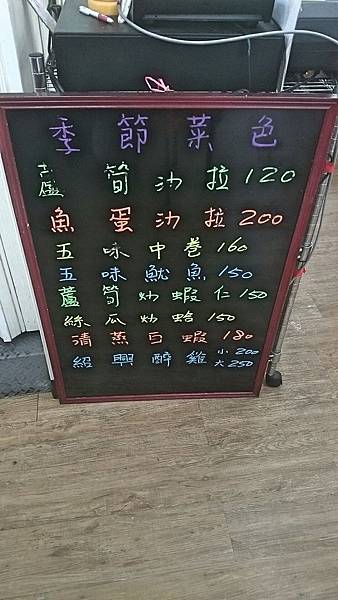 季節菜色
筍沙拉120
魚蛋沙拉200
五味中卷160
五味魷魚150
蘆筍炒蝦仁150
絲瓜炒蛤150
清蒸白蝦180
紹興醉雞小200
大250